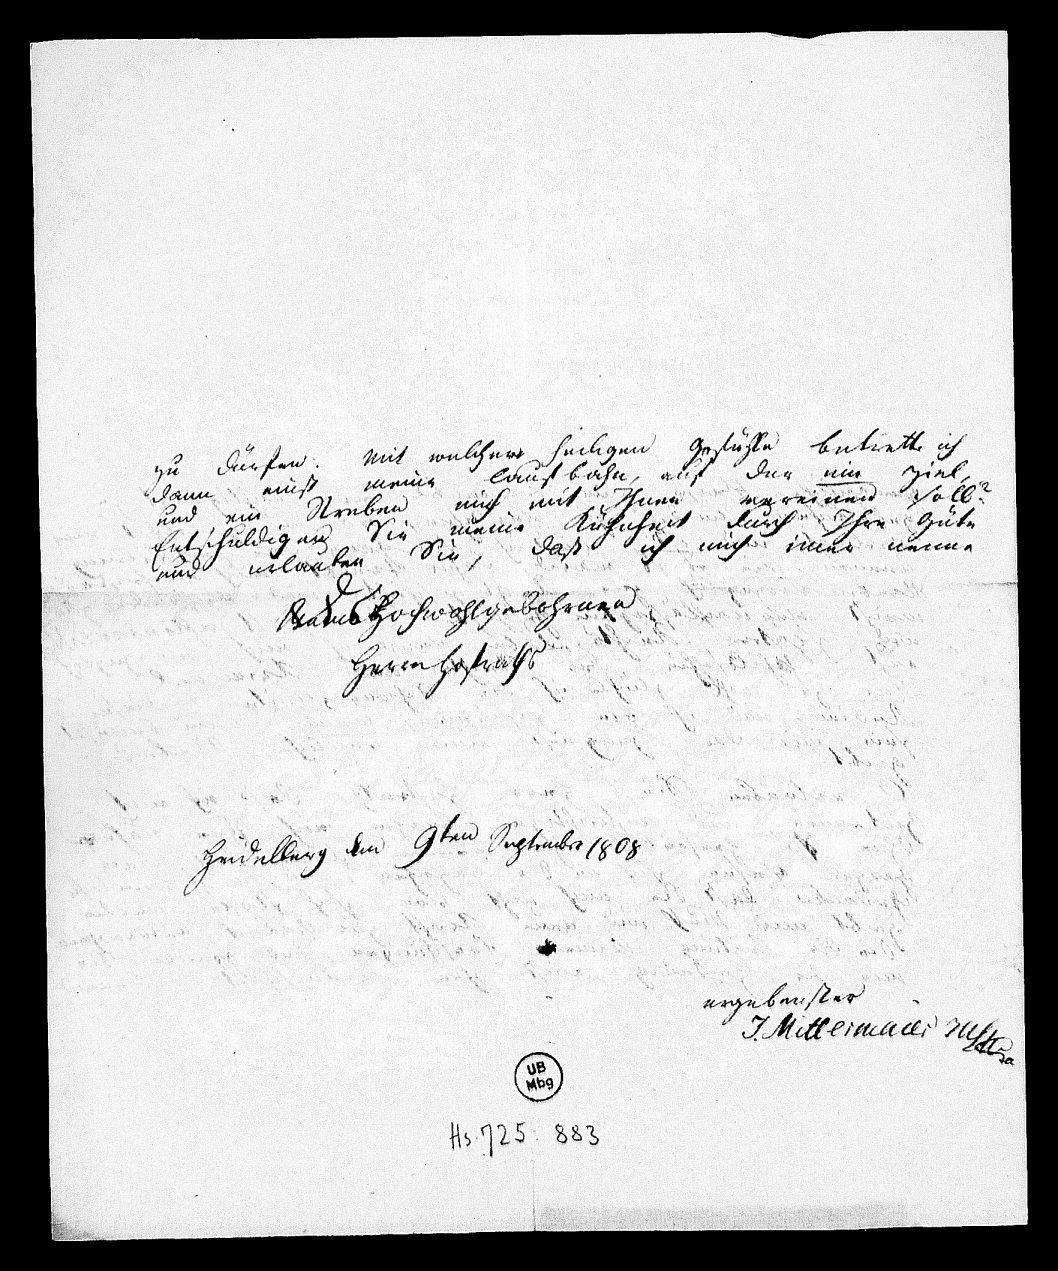 zu dürfen. Mit welchem heiligen Gefühle betrette ich
dann einst meine Laufbahn, auf der ein Ziel,
und ein Streben mich mit Ihnen vereinen soll?
Entschuldigen Sie meine Kühnheit durch Ihre Güte
und erlauben Sie, daß ich mich imer nenne
Hochwohlgebohrnen
Herrn Hofraths
Heidelberg den 9ten September 1808
ergebenster
J. Mittermaier
UB
Mbg
Hs. 725: 883